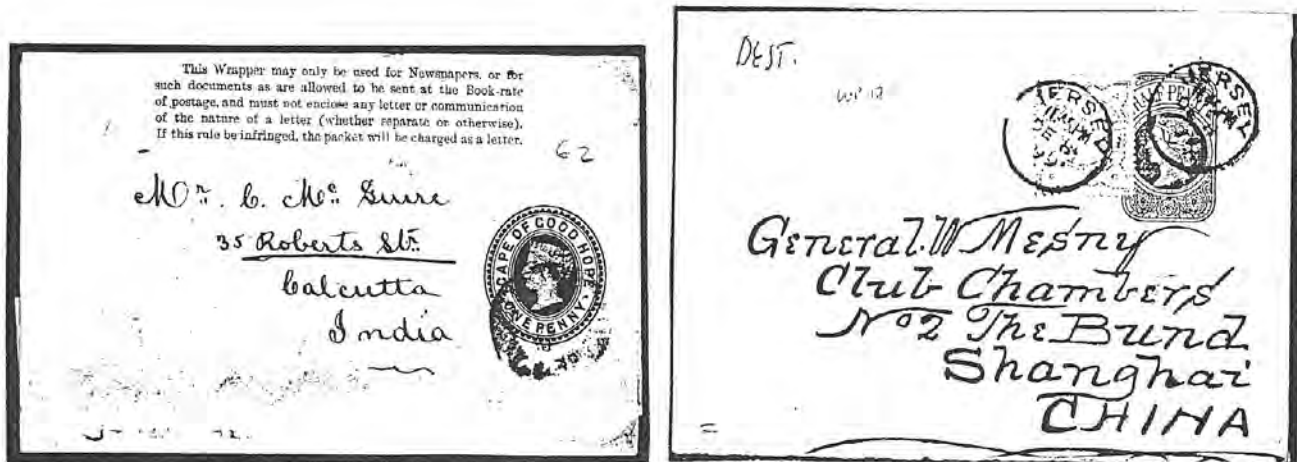 This Wrapper may only be used for Newspapers, or for
such documents as are allowed to be sent at the Book-rate
of postage, and must not enclose any letter or communication
of the nature of a letter (whether separate or otherwise).
If this rule be infringed, the packet will be charged as a letter.
62
Mr. C. Mc Guire
35 Roberts Str.
Calcutta
India
CAPE OF GOOD HOPE
ONE PENNY
DEST.
WP 12
JERSEY
JERSEY
General W Mesny
Club Chambers
No 2 The Bund
Shanghai
CHINA